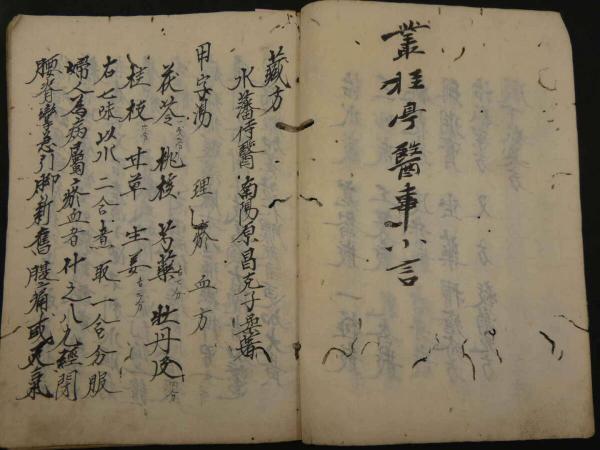 叢桂亭醫事小言
藏方
水藩侍醫 南陽原昌克子柔
甲字湯 理瘀血方
茯苓 桃核 芍藥 牡丹皮
桂枝 甘草 生姜
右七味以水二合煮取一合分服
婦人為病屬瘀血者什之八九經閉
腰脊攣急引脚新舊腹痛或